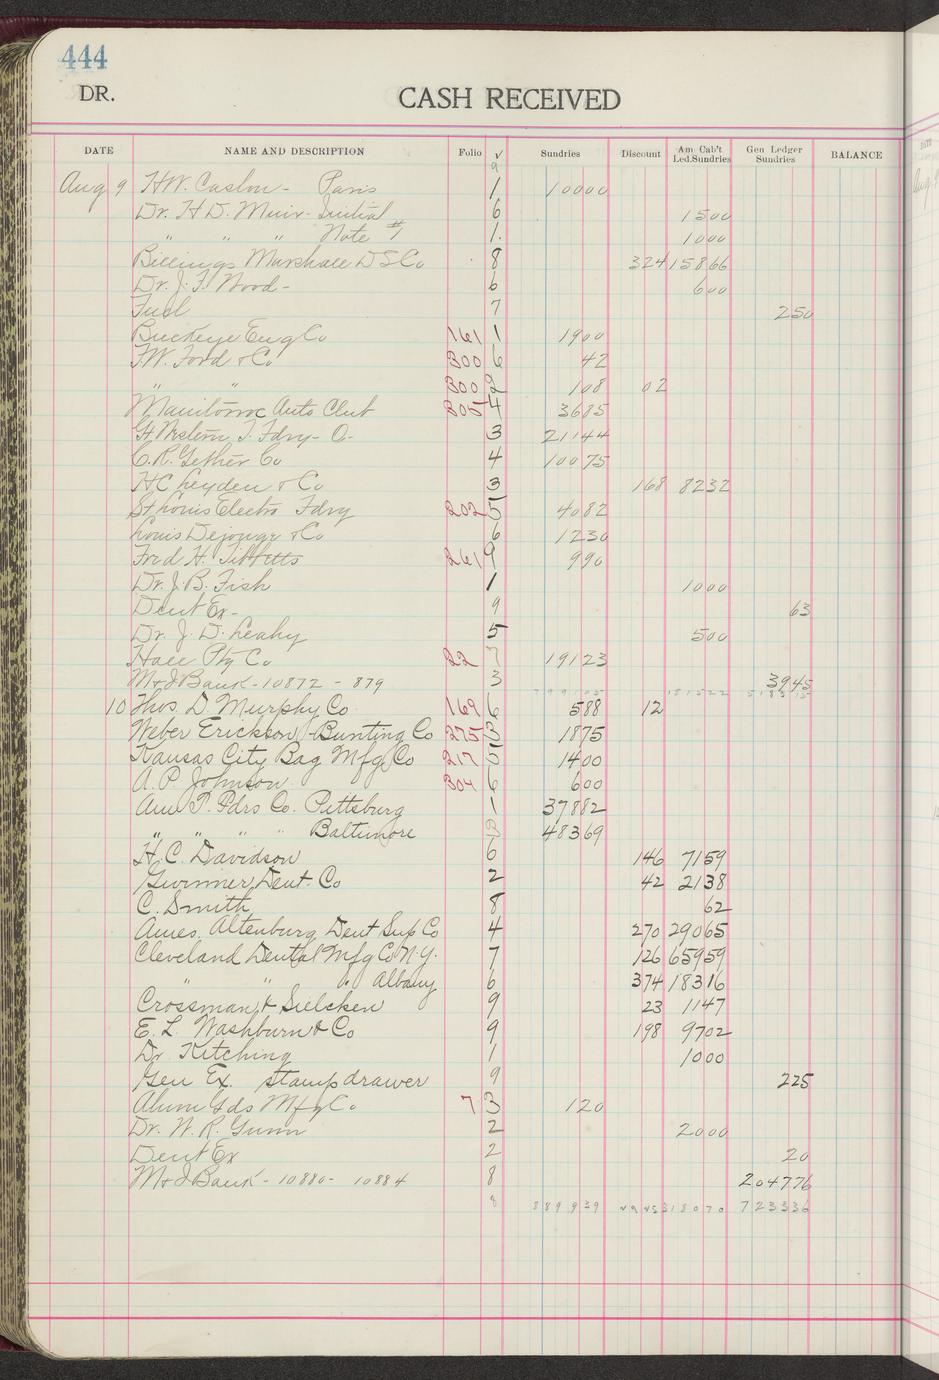 444
DR. CASH RECEIVED
DATE NAME AND DESCRIPTION Folio √ Sundries Discount Am Cab't Led.Sundries Gen Ledger Sundries BALANCE
9
Aug 9 H.W. Caslon - Paris 1 10000
Dr. H D. Muir - Initial 6 1500
" " " Note # 1. 1000
Billings Marshall D S Co 8 324 15866
Dr. J. F. Wood - 6 600
Fuel 7 250
Buckeye Eng Co 161 1 1900
F.W. Ford & Co 300 6 42
" " 300 2 108 02
Manitowoc Auto Club 205 4 3685
Gt Western T. Fdry - O - 3 21144
C.R. Gether Co 4 10075
H C Leyden & Co 3 168 8232
St Louis Electro Fdry 202 5 4082
Louis Dejonge & Co 6 1230
Fred H. Tibbetts 261 9 990
Dr. J. B. Fish 1 1000
Dent Ex - 9 63
Dr. J. D. Leahy 5 500
Hall Ptg Co 22 7 19123
M & I Bank - 10872 - 879 3 3945
10 Thos. D. Murphy Co 169 6 588 12
Weber Erickson - Bunting Co 275 3 1875
Kansas City Bag Mfg Co 217 5 1400
A. P. Johnson 304 6 600
Am T. Fdrs Co. Pittsburg 1 37882
" " " " Baltimore 3 48369
H. C. Davidson 6 146 7159
Gwinner Dent. Co 2 42 2138
C. Smith 8 62
Ames. Altenburg Dent Sup Co 4 270 29065
Cleveland Dental Mfg Co N.Y. 7 126 65959
" " " Albany 6 374 18316
Crossman & Sielcken 9 23 1147
E. L. Washburn & Co 9 198 9702
Dr. Kitching 1 1000
Gen Ex. Stamp drawer 9 225
Alum Gds Mfg Co 7 3 120
Dr. W. R. Gunn 2 2000
Dent Ex 2 20
M & I Bank - 10880 - 10884 8 204776
8 889939 318070 723336